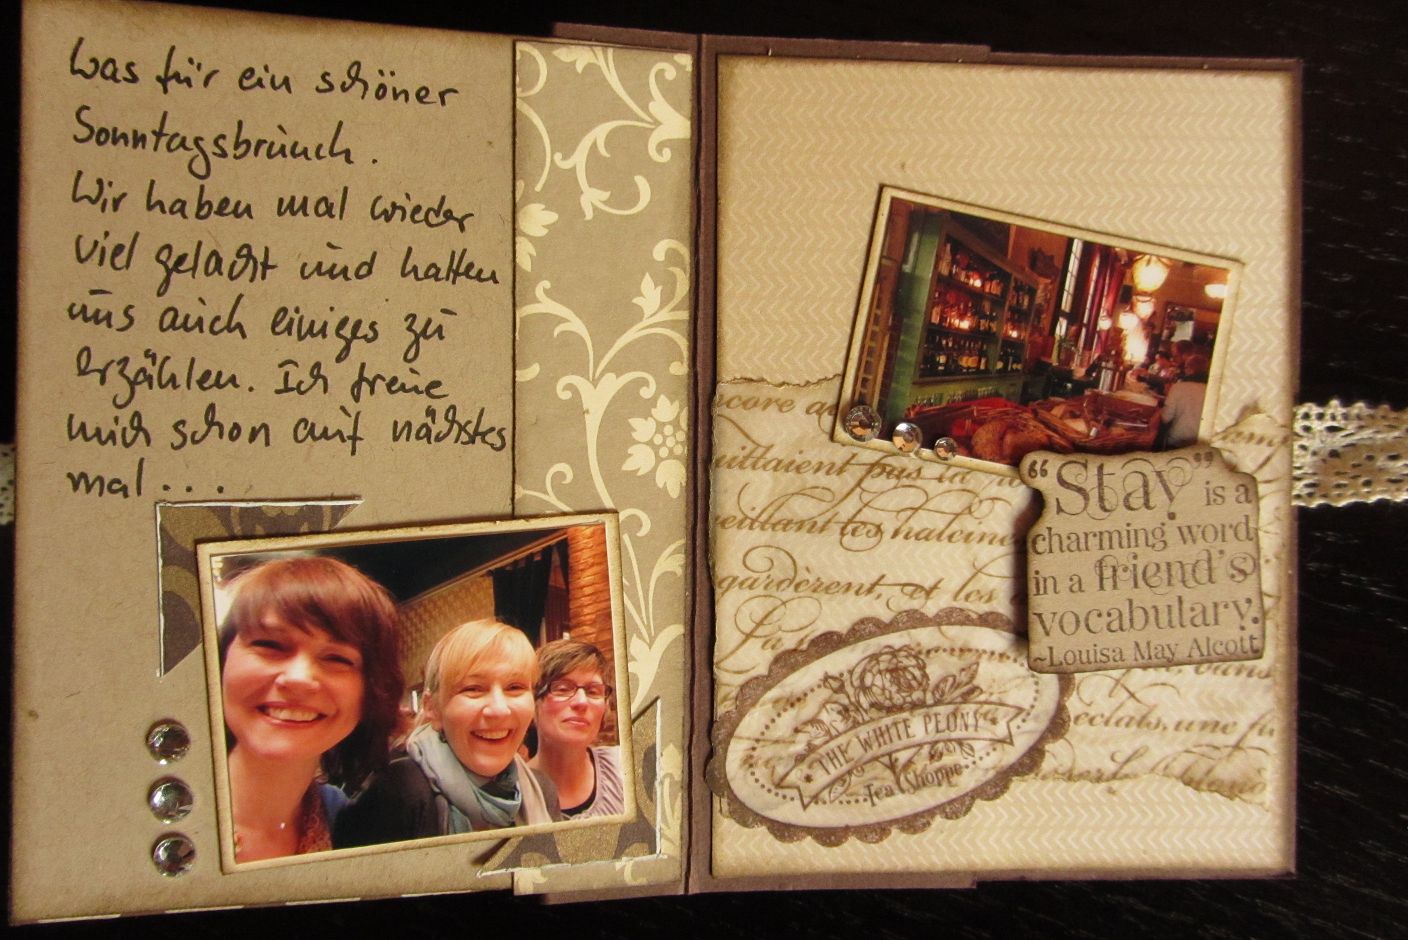 Was für ein schöner
Sonntagsbrunch.
Wir haben mal wieder
viel gelacht und hatten
uns auch einiges zu
erzählen. Ich freue
mich schon auf nächstes
mal...
core
uittaient pas la
veillant les haleine
gardèrent, et les
La
eclats, une fu
"Stay" is a
charming word
in a friend's
vocabulary.
~Louisa May Alcott
THE WHITE PEONY
Tea Shoppe